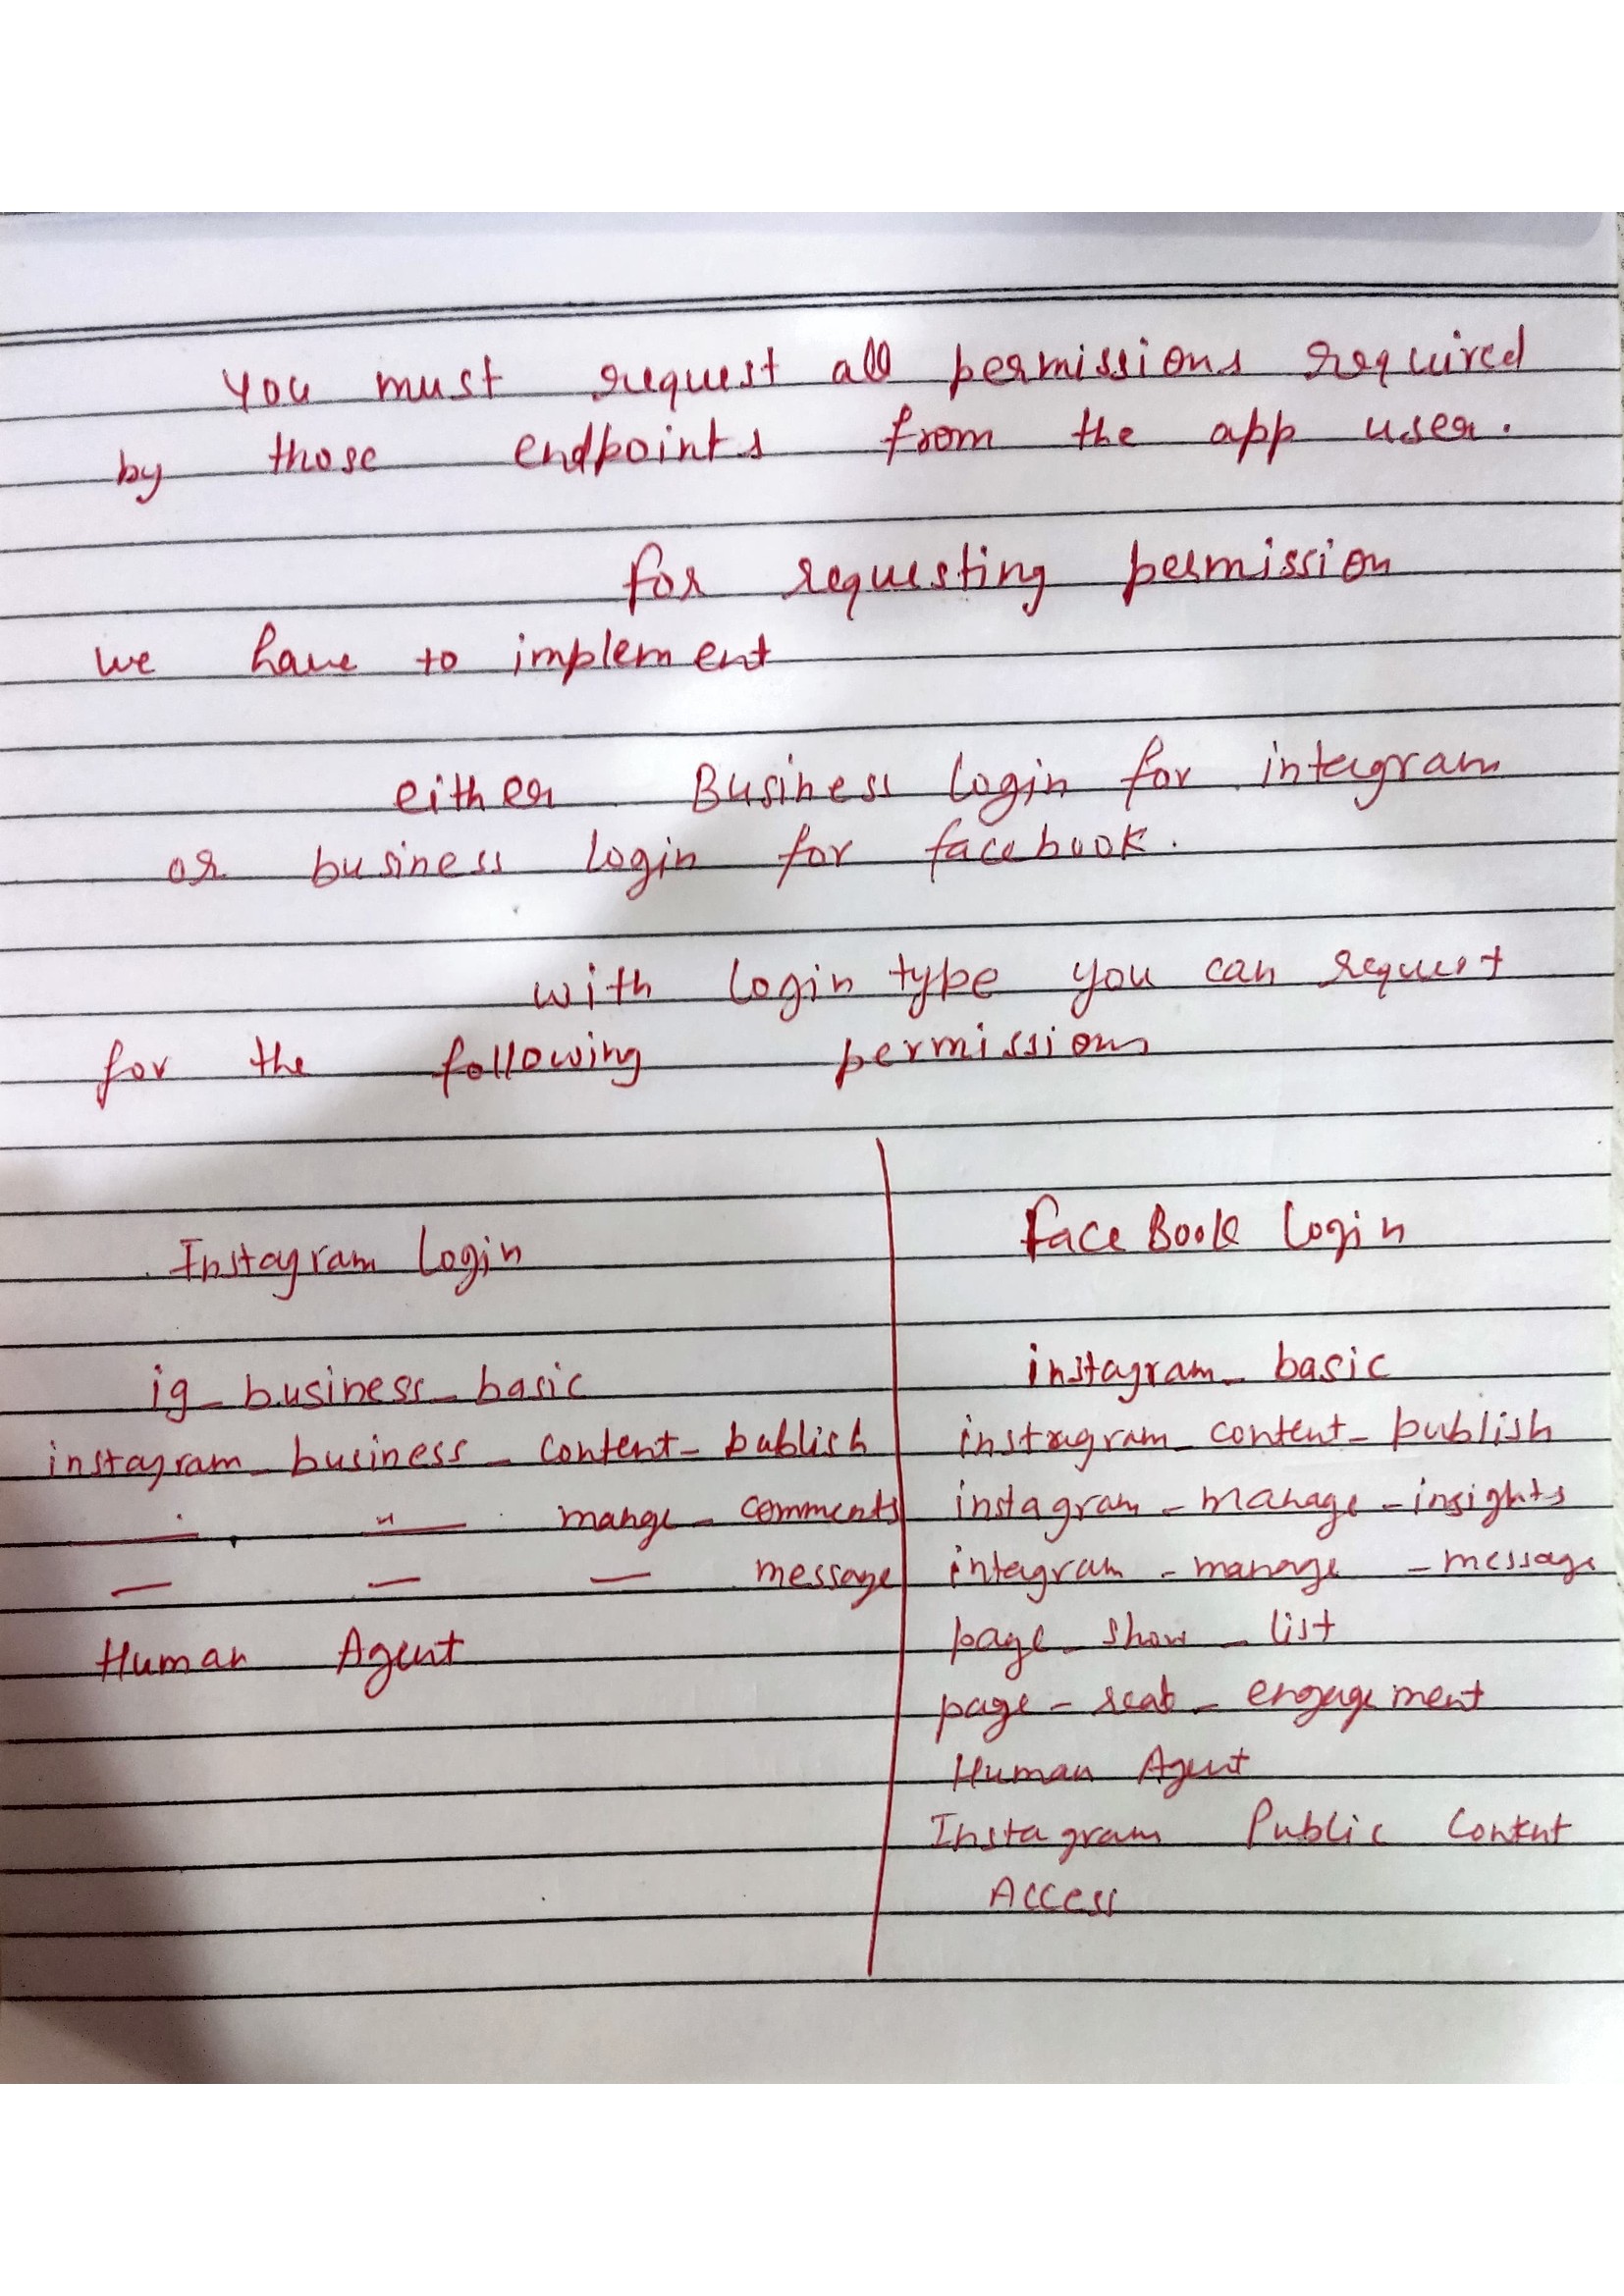 You must request all permissions required
by those endpoints from the app user.
for requesting permission
we have to implement
either Business login for intagram
or business login for facebook.
with login type you can request
for the following permissions
Instagram Login
ig_business_basic
instagram_business_content_publish
—"— —"— mange_comments
— — — message
Human Agent
FaceBook Login
instagram_basic
instagram_content_publish
instagram_manage_insights
intagram_manage_message
page_show_list
page_read_engagement
Human Agent
Instagram Public Content
Access